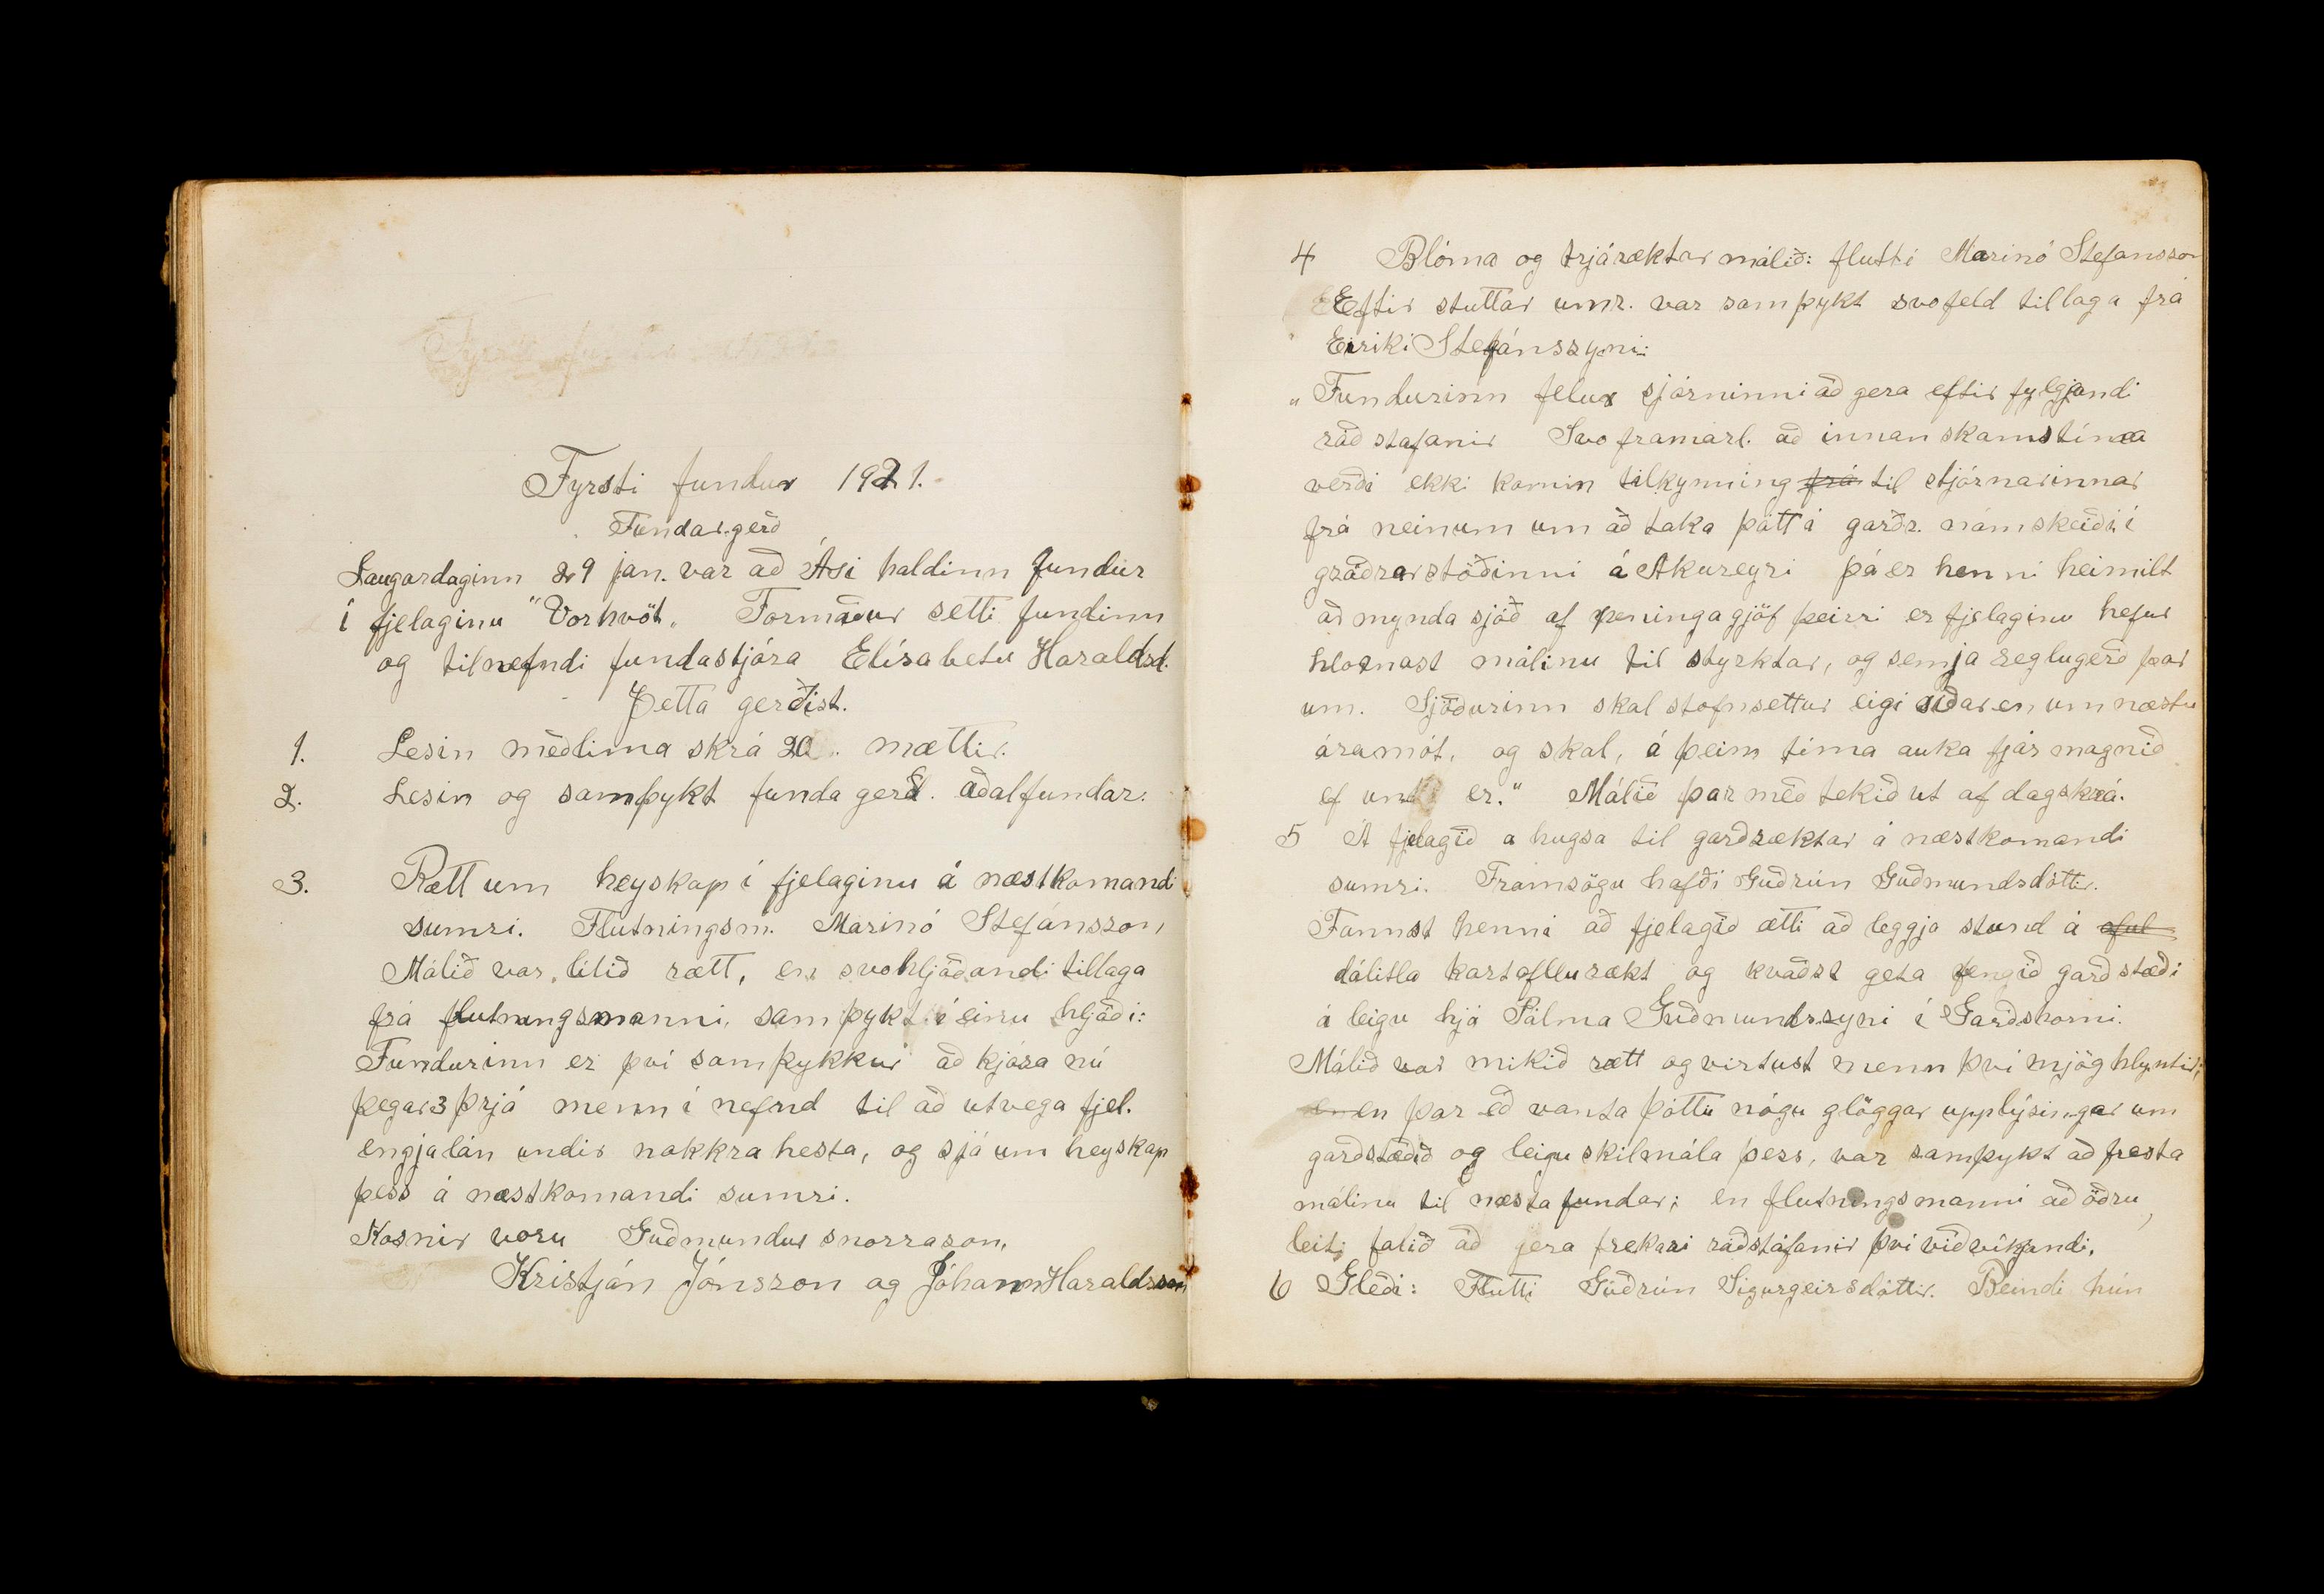 Fyrsti fundur 1921.
Fundargerð
Laugardaginn 29 jan. var að Ási haldinn fundur
í fjelaginu "Vorhvöt„ Formaður setti fundinn
og tilnefndi fundastjóra Elísabetu Haraldsd.
Þetta gerðist.
1. Lesin meðlima skrá 20 mættir.
2. Lesin og samþykt funda gerð. aðalfundar.
3. Rætt um heyskap í fjelaginu á næstkomandi
sumri. Flutningsm. Marinó Stefánsson,
Málið var lítið rætt, en svohljóðandi tillaga
frá flutningsmanni, samþykt í einu hljóði:
Fundurinn er því samþykkur að kjósa nú
þegar 3 þrjá menn í nefnd til að utvega fjel.
engjalán undir nokkra hesta, og sjá um heyskap
þess á næstkomandi sumri.
Kosnir voru Guðmundur snorrason,
Kristján Jónsson og Jóhann Haraldsson
4 Blóma og trjáræktarmálið: flutti Marinó Stefansson
Eftir stuttar umr. var samþykt svofeld tillaga frá
Eiríki Stefánssyni:
„Fundurinn felur sjórninni að gera eftir fylgjandi
ráðstafanir Svo framarl. að innan skamstíma
verði ekki komin tilkynning frá til stjórnarinnar
frá neinum um að taka þátt í garðr. námskeiði í
gróðrarstöðinni á Akureyri þá er henni heimilt
að mynda sjóð af peningagjöf þeirri er fjelaginu hefur
hlotnast málinu til styrktar, og semja reglugerð þar
um. Sjóðurinn skal stofnsettur eigi síðar en um næstu
áramót, og skal, á þeim tíma auka fjármagnið
ef unt er." Málið þar með tekið ut af dagskrá.
5 Á fjelagið a hugsa til garðræktar á næstkomandi
sumri. Framsögu hafði Guðrún Guðmundsdóttir.
Fannst henni að fjelagið ætti að leggja stund á aful
dálitla kartöflurækt og kvaðst geta fengið garðstæði
á leigu hjá Pálma Guðmundssyni í Garðshorni.
Málið var mikið rætt og virtust menn því mjög hlyntir;
en en þar eð vanta þóttu nógu glöggar upplýsingar um
garðstæðið og leigu skilmála þess, var samþykt að fresta
málinu til næsta fundar; en flutningsmanni að öðru
leiti falið að gera frekari ráðstafanir því viðvíkjandi.
6 Gleði: Flutti Guðrún Sigurgeirsdóttir. Beindi hún